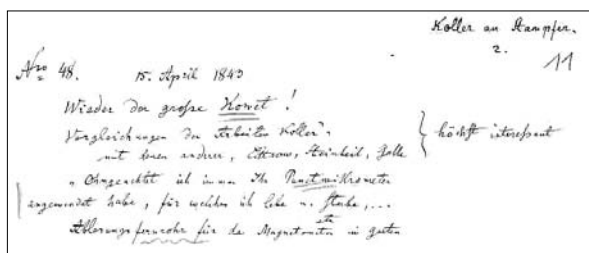 Koller an Stampfer.
2.
11
Nro 48. 15. April 1843
Wieder der große Komet!
Vergleichungen der Arbeiten Koller's
mit denen anderer, Littrow, Steinheil, Galle
höchst interessant
"Ohngeachtet ich immer Ihr Punctmikrometer
angewendet habe, für welches ich lebe u. sterbe,...
etc
Ablesungsfernrohr für das Magnetometer in